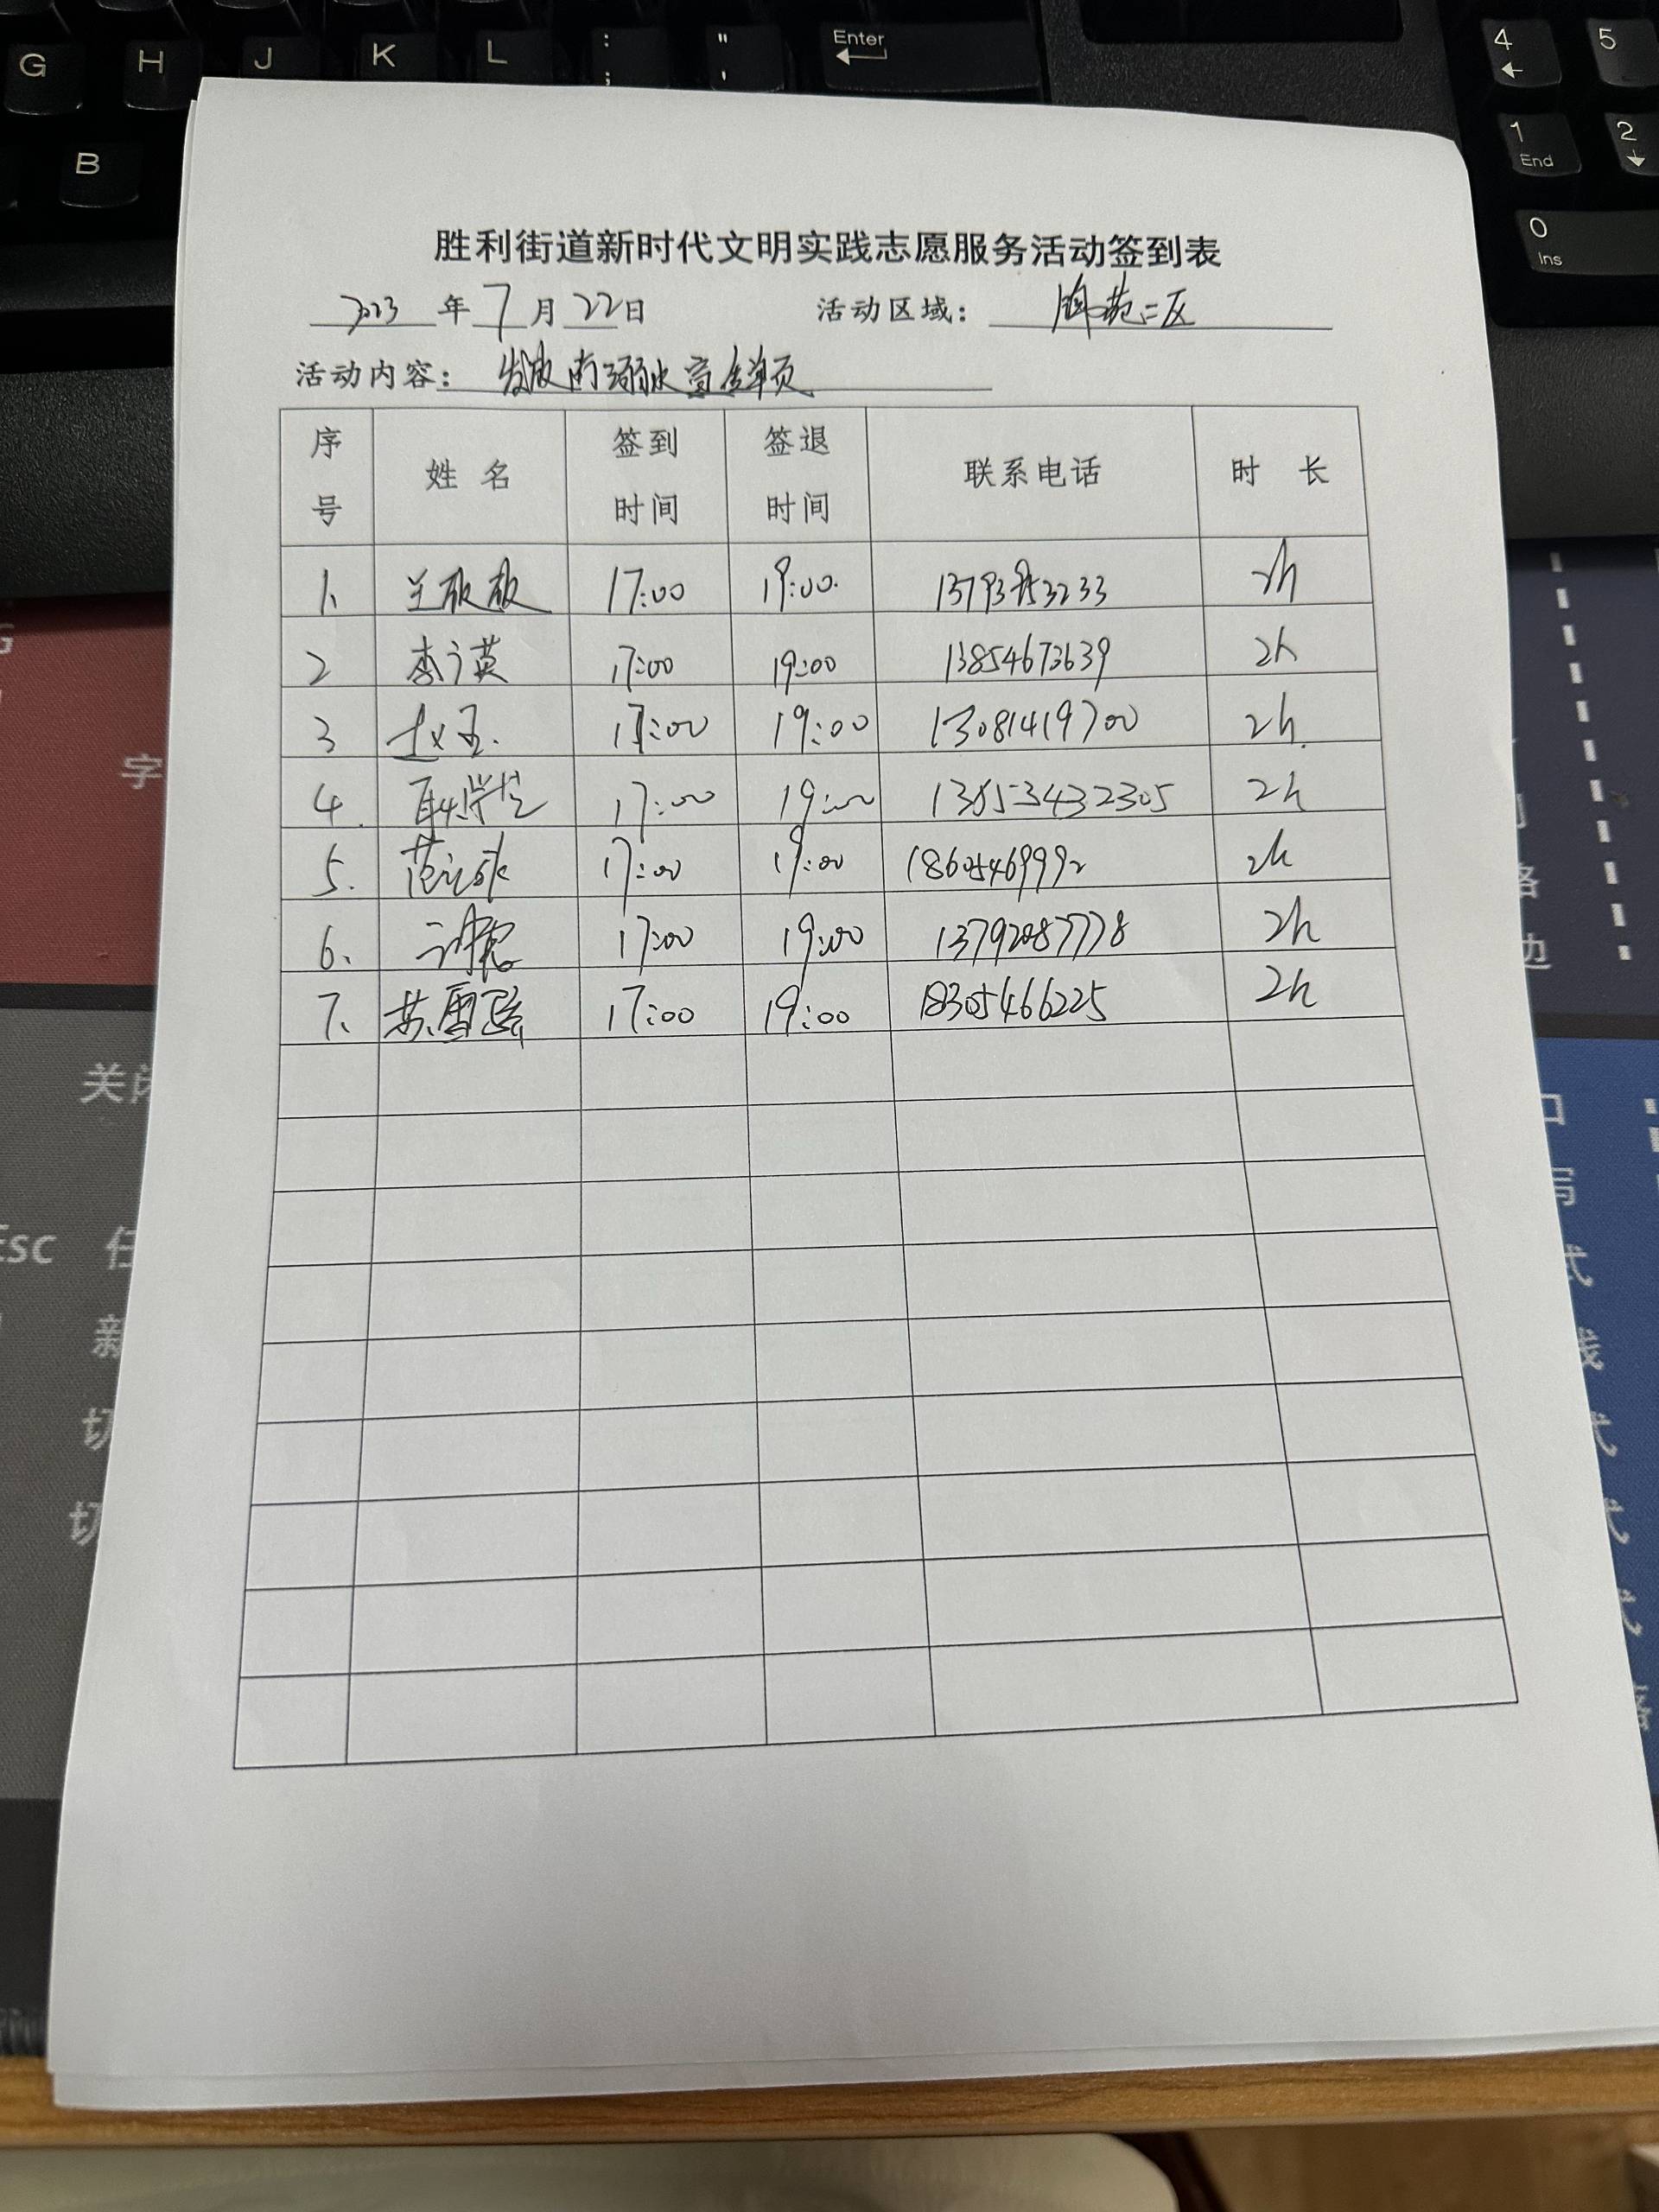 G H J K L : ; " ' Enter
4 5
B
1 End 2
0 Ins
胜利街道新时代文明实践志愿服务活动签到表
2023 年 7 月 22 日 活动区域: 锦苑二区
活动内容: 发放防溺水宣传单页
序号 姓名 签到时间 签退时间 联系电话 时长
1、 17:00 19:00 2h
2 李广英 17:00 19:00 13854673639 2h
3 赵玉 17:00 19:00 13081419700 2h
4 17:00 19:00 2h
5. 17:00 19:00 18605469992 2h
6、 17:00 19:00 13792087778 2h
7、 苏雪 17:00 19:00 18305466225 2h
字
关闭
Esc
新
切
切
边
口
写
式
线
式
式
式